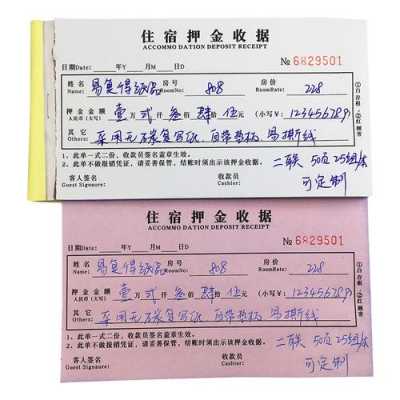 住宿押金收据
ACCOMMO DATION DEPOSIT RECEIPT
日期Date: 年Y 月M 日D № 6829501
姓名 Name 易复得纸品 房号 808 房价 RoomRate: 228
押金金额 人民币(大写) 壹万贰仟叁佰肆拾伍元 (小写¥: 123456789)
其它 Others: 采用无碳复写纸,自带垫板 易撕线
1、此单一式二份,收款员签名盖章生效。
2、此单不做报销凭证,请妥善保管,结账时须出示该押金收据。
二联 50页 25组/本
客人签名 Guest Signaure: 收款员 Cashier: 可定制
①白存根 ②红顾客
住宿押金收据
ACCOMMO DATION DEPOSIT RECEIPT
日期Date: 年Y 月M 日D № 6829501
姓名 Name 易复得纸品 房号 808 房价 RoomRate: 228
押金金额 人民币(大写) 壹万贰仟叁佰肆拾伍元 (小写¥: 123456789)
其它 Others: 采用无碳复写纸,自带垫板 易撕线
1、此单一式二份,收款员签名盖章生效。
2、此单不做报销凭证,请妥善保管,结账时须出示该押金收据。
二联 50页 25组/本
客人签名 Guest Signaure: 收款员 Cashier: 可定制
①白存根 ②红顾客